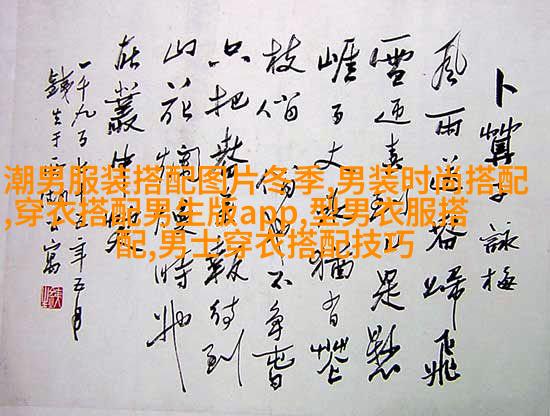 潮男服装搭配图片冬季,男装时尚搭配
,穿衣搭配男生版app,型男衣服搭
配,男士穿衣搭配技巧
卜算子 詠梅
風雨送春歸飛
雪迎春到已是懸
崖百丈冰猶有花
枝俏俏也不爭春
只把春來報待到
山花爛漫時她
在叢中笑
一千九百年五月